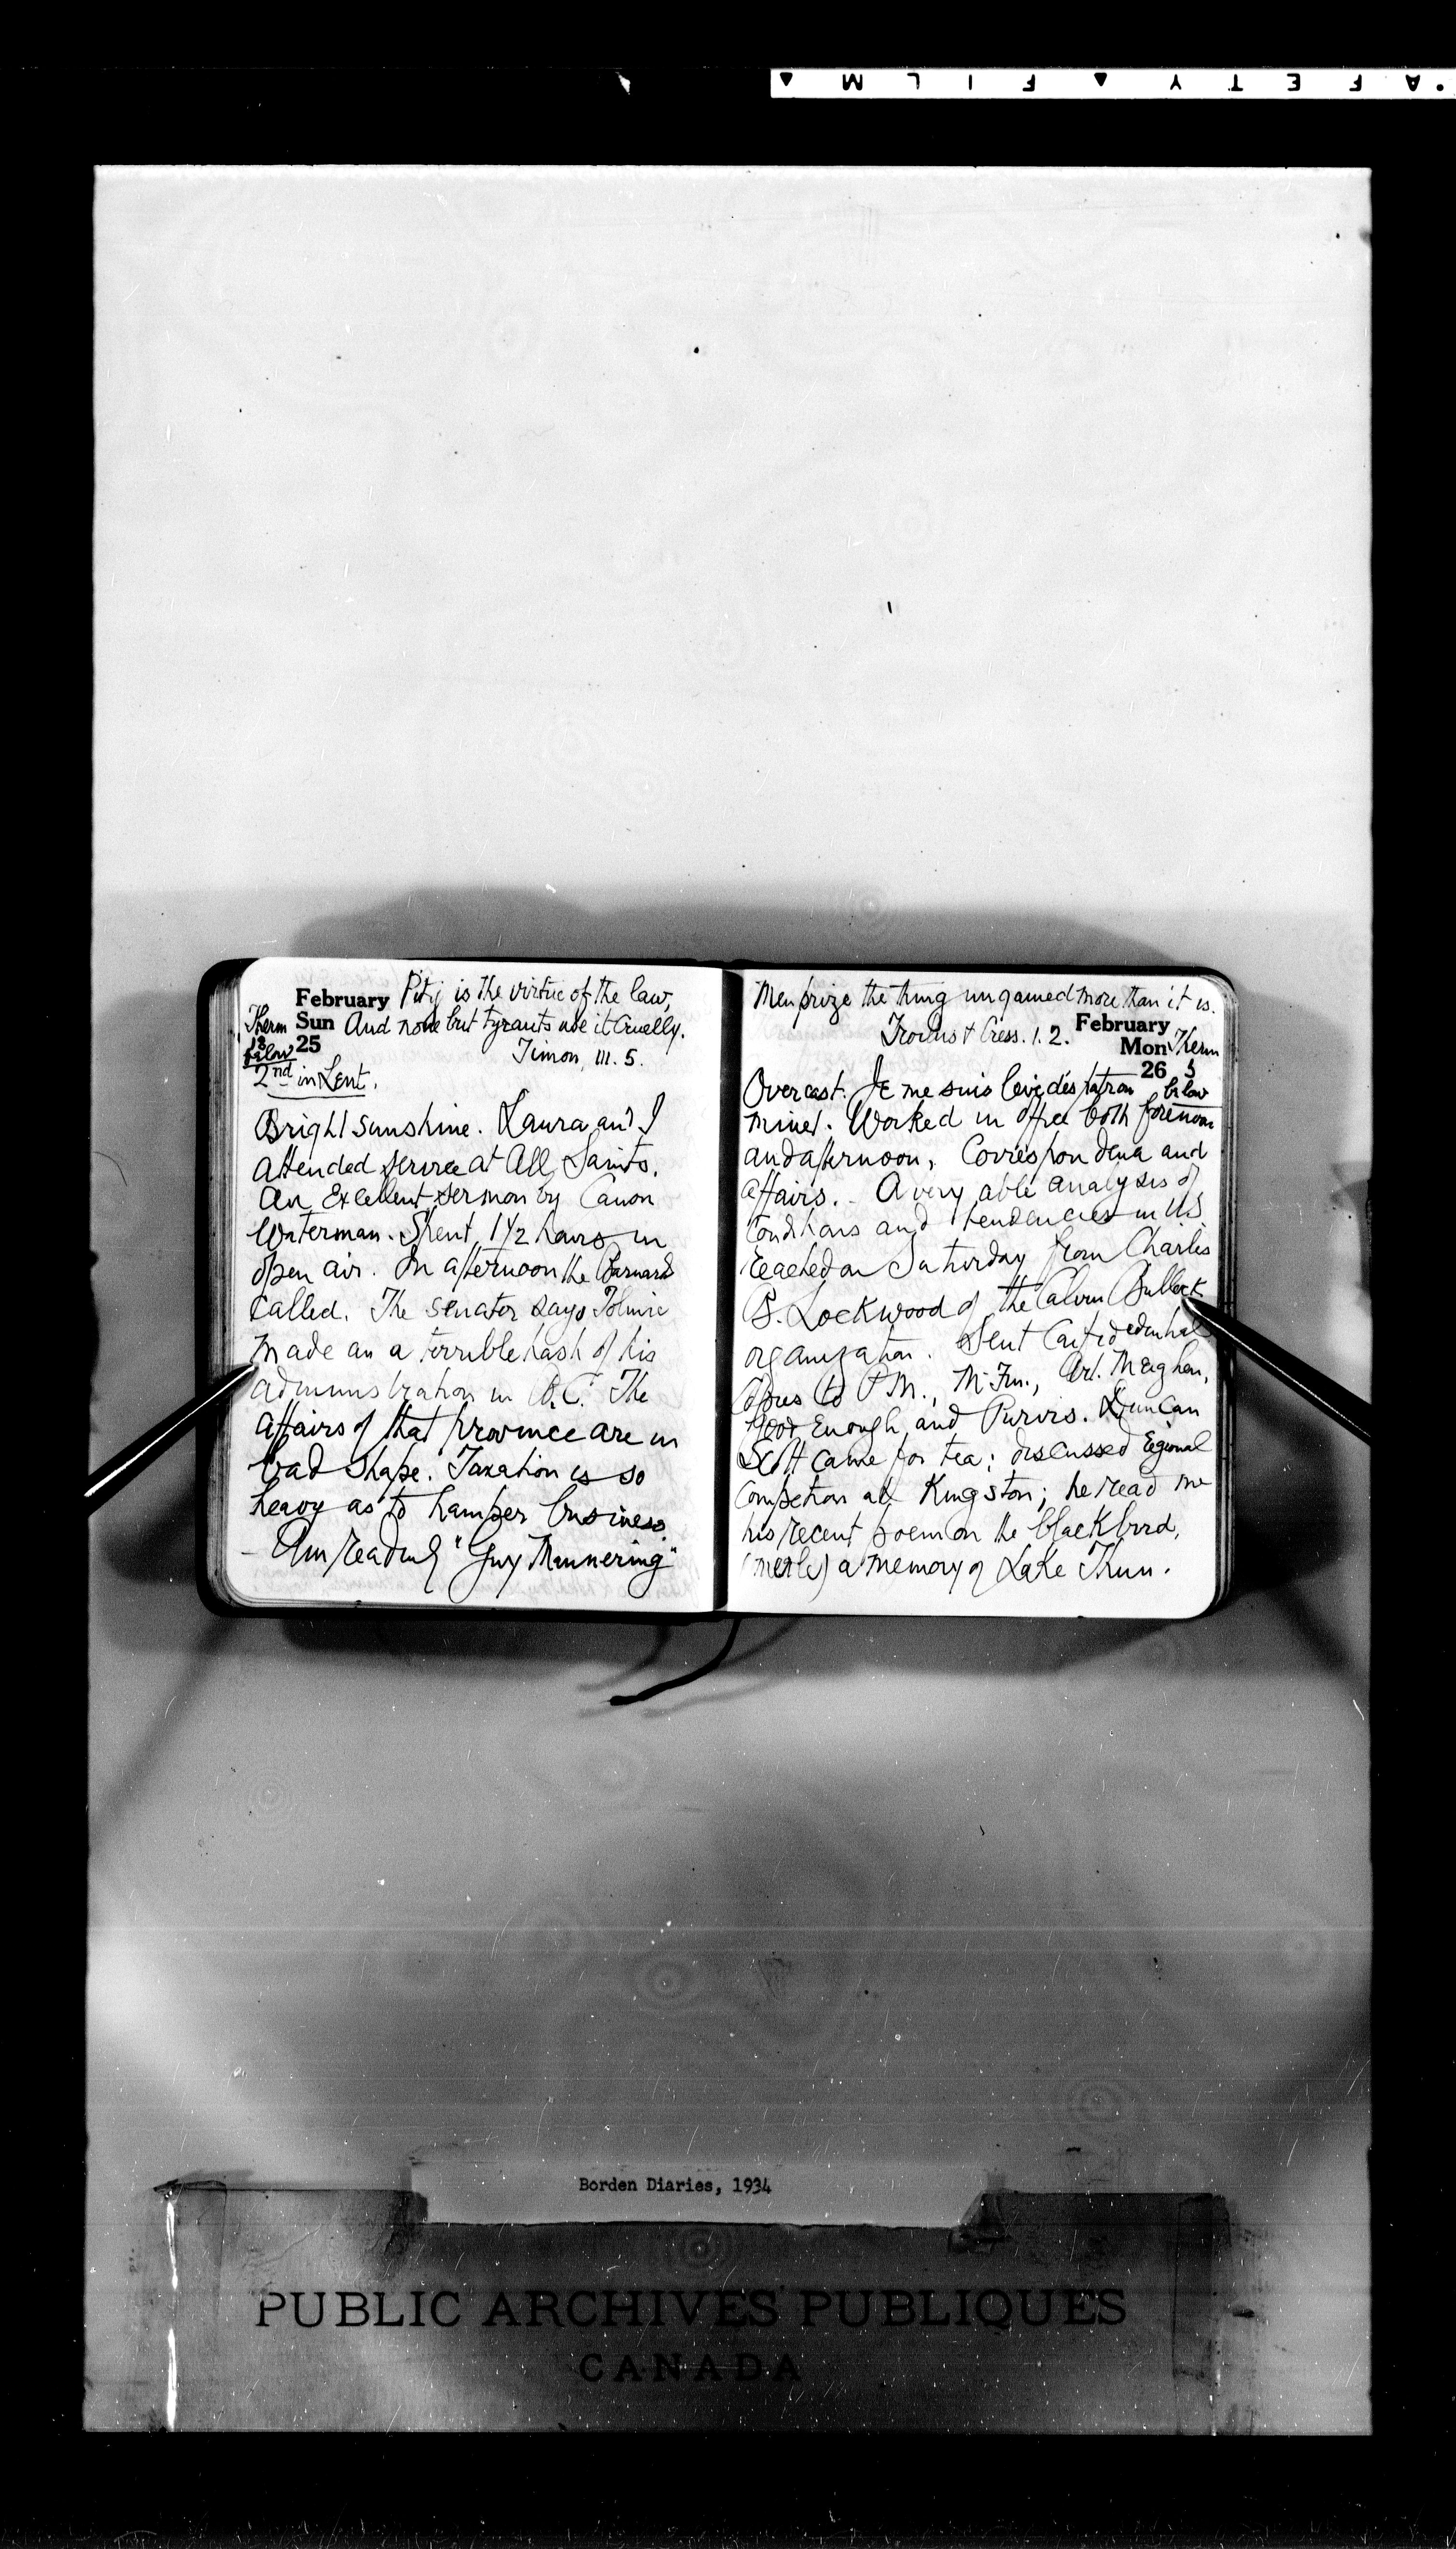 SAFETY ▲ FILM ▲
February
Sun
25
Therm
18
below
2nd in Lent.
Pity is the virtue of the law,
And none but tyrants use it cruelly.
Timon, III. 5.
Bright sunshine. Laura and I
attended service at All Saints.
An Excellent sermon by Canon
Waterman. Spent 1 1/2 hours in
open air. In afternoon the Barnards
called. The senator says Tolmie
made an a terrible hash of his
administration in B.C. The
affairs of that province are in
bad shape. Taxation is so
heavy as to hamper business.
- Am reading "Guy Mannering"
Men prize the thing ungained more than it is.
Troilus & Cress. 1. 2.
February
Mon
26
Therm
5
below
Overcast. Je me suis levé dès
minet. Worked in office both forenoon
and afternoon. Correspondence and
affairs. - A very able analysis of
conditions and tendencies in US
reached on Saturday from Charles
B. Lockwood of the Calvin Bullock
organization. Sent
copies to P.M., M. Fin., Art. Meighen,
and Purvis. Duncan
Scott came for tea; discussed
at Kingston; he read me
his recent poem on the blackbird,
(merle) a memory of Lake Thun.
Borden Diaries, 1934
PUBLIC ARCHIVES PUBLIQUES
CANADA